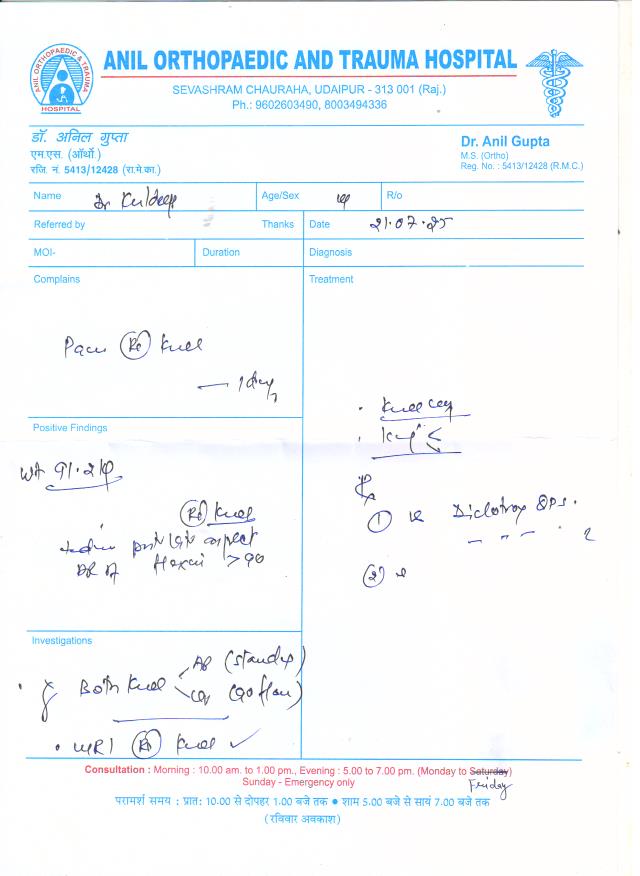 ANIL ORTHOPAEDIC & TRAUMA
HOSPITAL
ANIL ORTHOPAEDIC AND TRAUMA HOSPITAL
SEVASHRAM CHAURAHA, UDAIPUR - 313 001 (Raj.)
Ph.: 9602603490, 8003494336
डॉ. अनिल गुप्ता
एम.एस. (ऑर्थो.)
रजि. नं. 5413/12428 (रा.मे.का.)
Dr. Anil Gupta
M.S. (Ortho)
Reg. No. : 5413/12428 (R.M.C.)
Name Dr Kuldeep Age/Sex R/o
Referred by Thanks Date 21.07.25
MOI- Duration Diagnosis
Complains Treatment
Pain (Rt) Knee
— 1 day
Knee cap
Positive Findings
Wt 91.2 kg
(Rt) Knee
aspect
> 90
Rx
① Diclotroy
②
Investigations
Both Knee AP (standing)
MRI (Rt) Knee ✓
Consultation : Morning : 10.00 am. to 1.00 pm., Evening : 5.00 to 7.00 pm. (Monday to Saturday)
Friday
Sunday - Emergency only
परामर्श समय : प्रातः 10.00 से दोपहर 1.00 बजे तक ● शाम 5.00 बजे से सायं 7.00 बजे तक
(रविवार अवकाश)